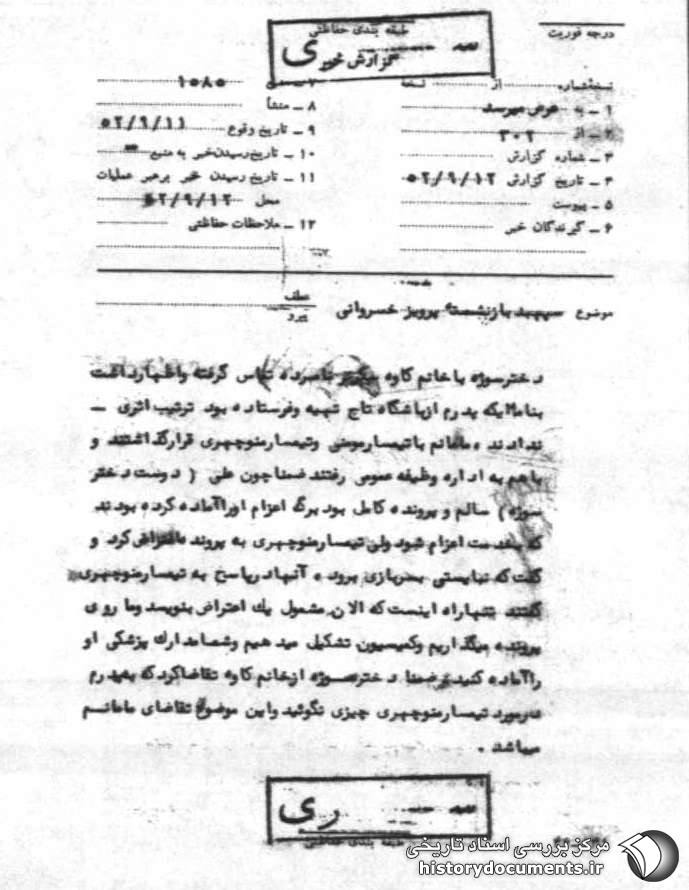 درجه فوریت
طبقه بندی حفاظتی
گزارش خبری
نسخه شماره از نسخه
۱ ـ به عرض میرسد
۲ ـ از ۳۰۲
۳ ـ شماره گزارش
۴ ـ تاریخ گزارش ۵۲/۹/۱۲
۵ ـ پیوست
۶ ـ گیرندگان خبر
۷ ـ ۱۰۸۵
۸ ـ منشأ
۹ ـ تاریخ وقوع ۵۲/۹/۱۱
۱۰ ـ تاریخ رسیدن خبر به منبع
۱۱ ـ تاریخ رسیدن خبر برهبر عملیات
محل ۵۲/۹/۱۲
۱۲ ـ ملاحظات حفاظتی
موضوع سپهبد بازنشسته پرویز خسروانی
عطف
پیرو
دختر سوژه با خانم کاوه تماس گرفته و اظهار داشت
بنامه‌ایکه پدرم از باشگاه تاج تهیه و فرستاده بود ترتیب اثری ـ
ندادند و مامانم با تیمسار مومنی و تیمسار منوچهری قرار گذاشتند و
با هم به اداره وظیفه عمومی رفتند ضمنا چون علی ( دوست دختر
سوژه) سالم و پرونده کامل بود برگ اعزام او را آماده کرده بودند
که بخدمت اعزام شود ولی تیمسار منوچهری به پرونده اعتراض کرد و
گفت که نبایستی بسربازی برود . آنها در پاسخ به تیمسار منوچهری
گفتند تنها راه اینست که الان مشمول یک اعتراض بنویسد و ما روی
پرونده میگذاریم و کمیسیون تشکیل میدهیم و شما مدارک پزشکی او
را آماده کنید ضمنا دختر سوژه از خانم کاوه تقاضا کرد که بپدرم
در مورد تیمسار منوچهری چیزی نگوئید و این موضوع تقاضای مامانم
میباشد .
طبقه بندی حفاظتی
مرکز بررسی اسناد تاریخی
historydocuments.ir